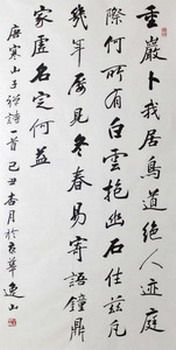 重巖卜我居鳥道絕人迹庭
際何所有白雲抱幽石住茲凡
幾年屢見冬春易寄語鐘鼎
家虛名定何益
唐寒山子禪詩一首己丑杏月於京華逸山